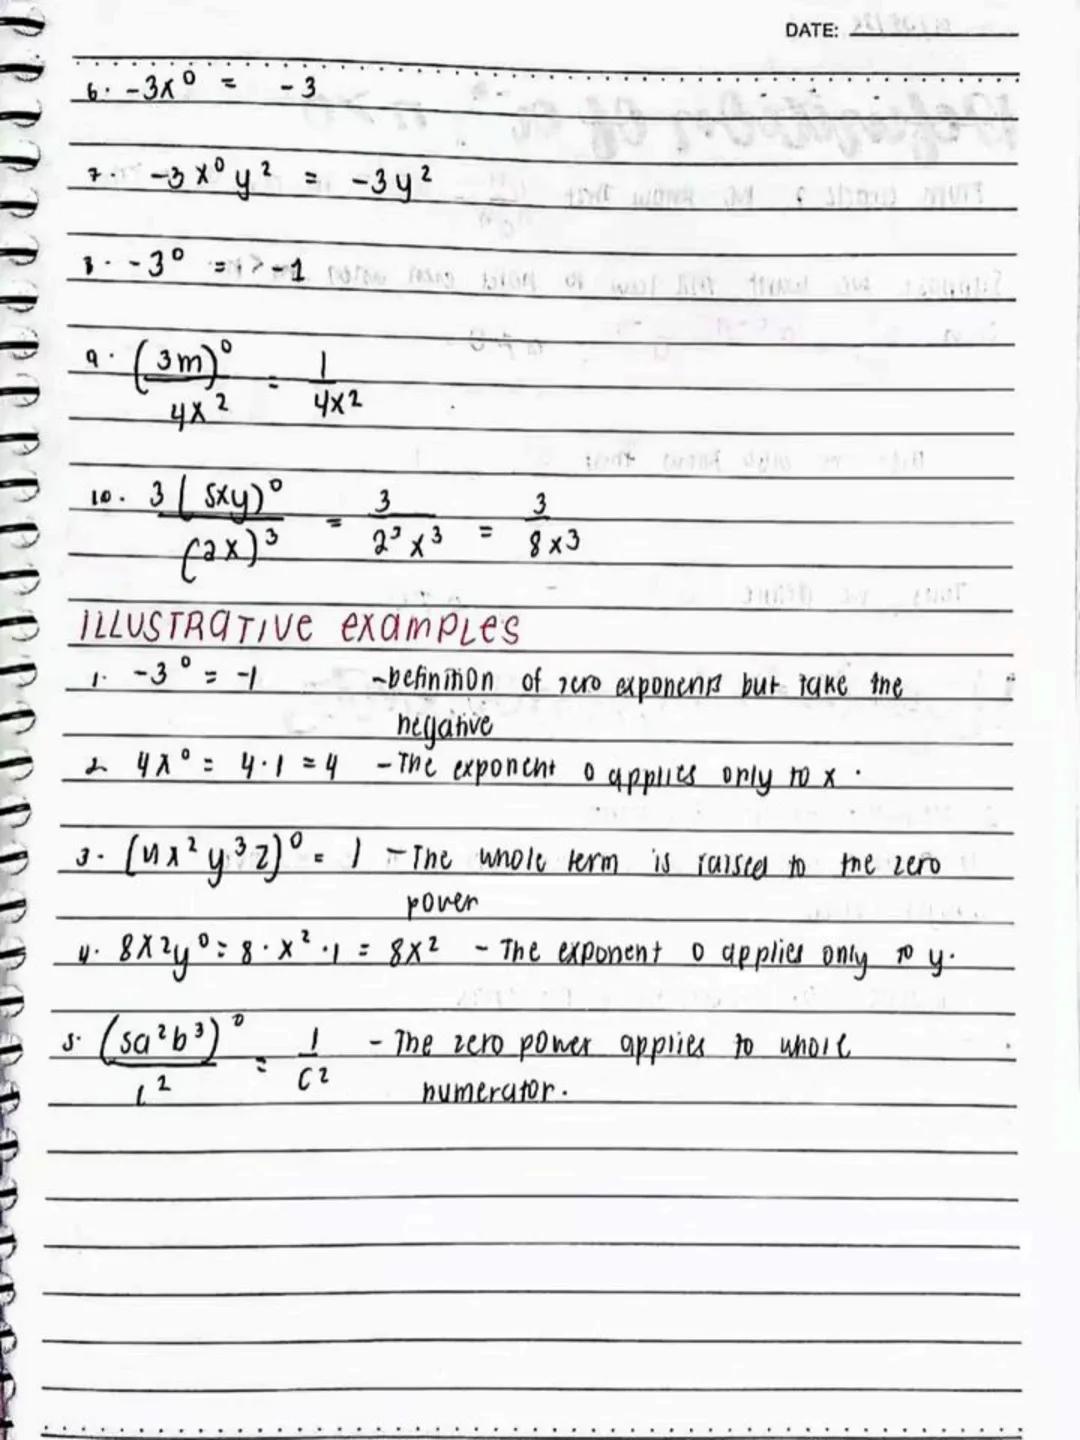 DATE:
6. -3x⁰ = -3
7. -3x⁰y² = -3y²
8. -3⁰ => -1
9. (3m)⁰ / 4x² = 1 / 4x²
10. 3(5xy)⁰ / (2x)³ = 3 / 2³x³ = 3 / 8x3
ILLUSTRATIVE examples
1. -3⁰ = -1 -Definition of zero exponents but take the
negative
2 4x⁰ = 4·1 = 4 - The exponent 0 applies only to x.
3. (4x²y³z)⁰ = 1 - The whole term is raised to the zero
power
4. 8x2y⁰ = 8·x²·1 = 8x² - The exponent 0 applies only to y.
5. (5a²b³)⁰ / c² = 1 / c² - The zero power applies to whole
numerator.